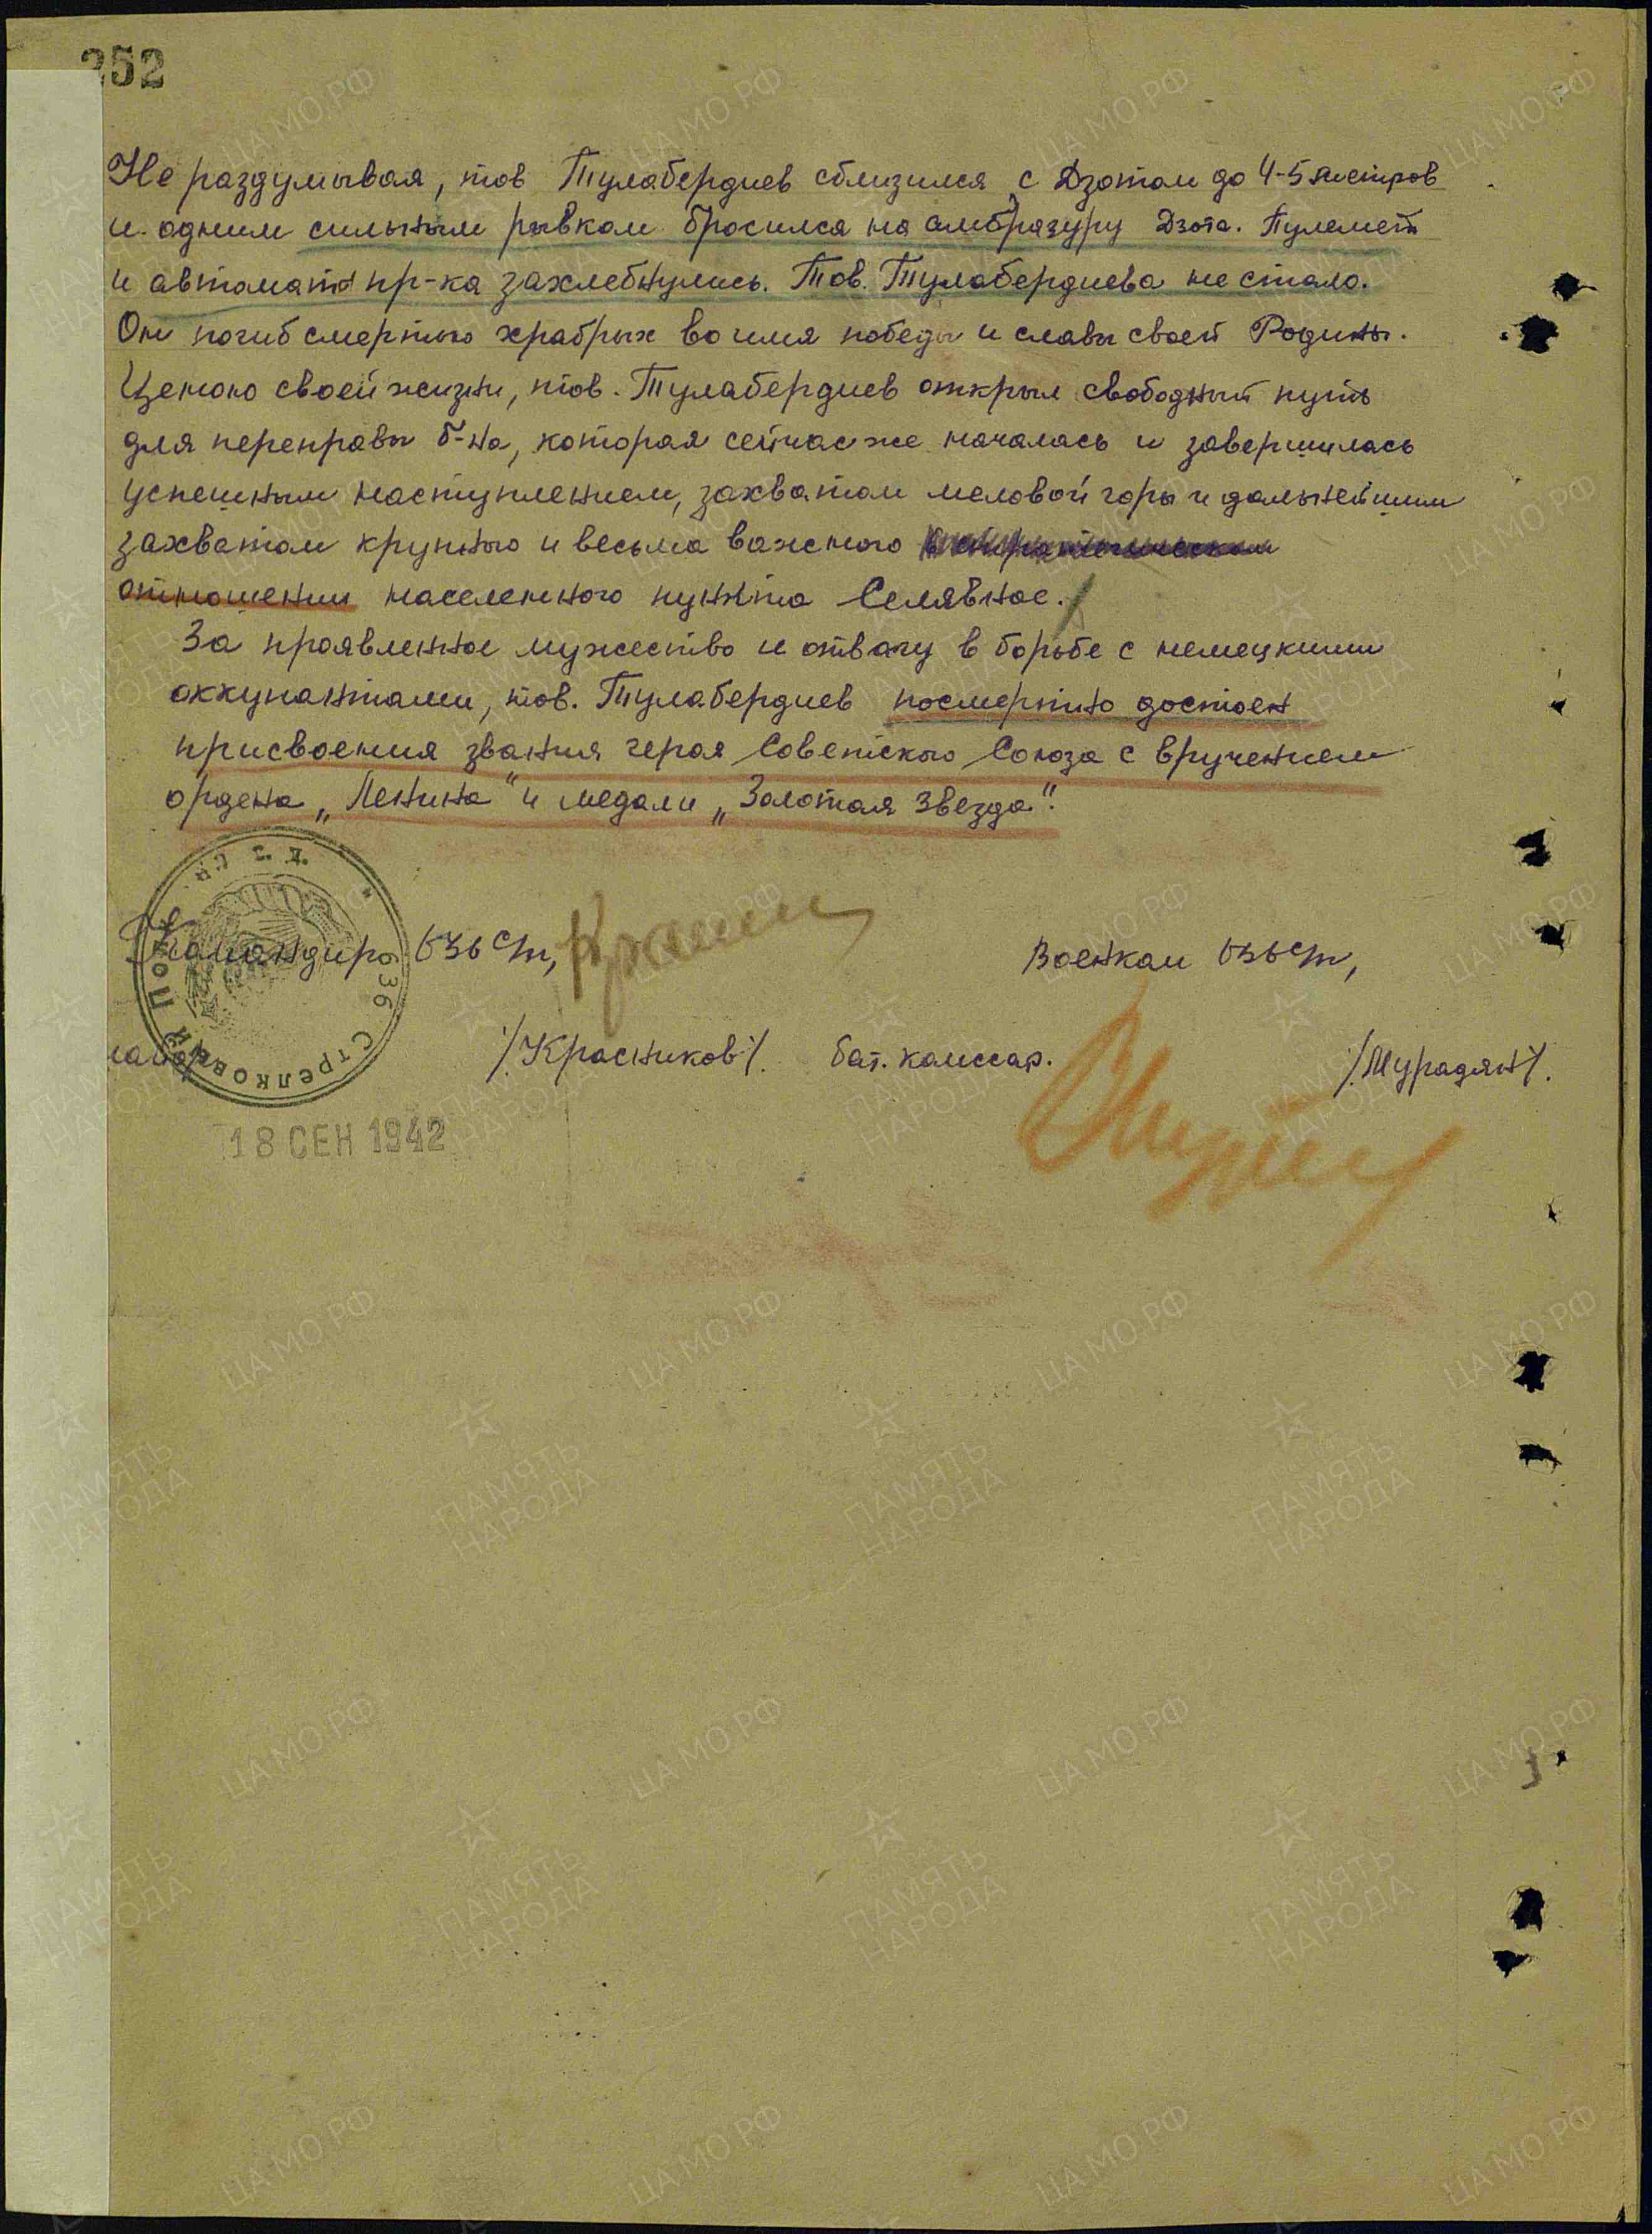 252
Не раздумывая, тов Тулабердиев сблизился с Дзотом до 4-5 метров
и одним сильным рывком бросился на амбразуру Дзота. Пулемет
и автоматы пр-ка захлебнулись. Тов. Тулабердиева не стало.
Он погиб смертью храбрых во имя победы и славы своей Родины.
Ценою своей жизни, тов. Тулабердиев открыл свободный путь
для переправы б-на, которая сейчас же началась и завершилась
успешным наступлением, захватом меловой горы и дальнейшим
захватом крупного и весьма важного в стратегическом
отношении населенного пункта Селявное.
За проявленное мужество и отвагу в борьбе с немецкими
оккупантами, тов. Тулабердиев посмертно достоен
присвоения звания героя Советского Союза с вручением
ордена „Ленина" и медали „Золотая Звезда".
Командир 636 сп,
Военком 636 сп,
майор
/Красников/.
бат. комиссар.
/Мурадян/.
636 Стрелковый Полк
18 СЕН 1942
ЦА МО РФ
ПАМЯТЬ НАРОДА